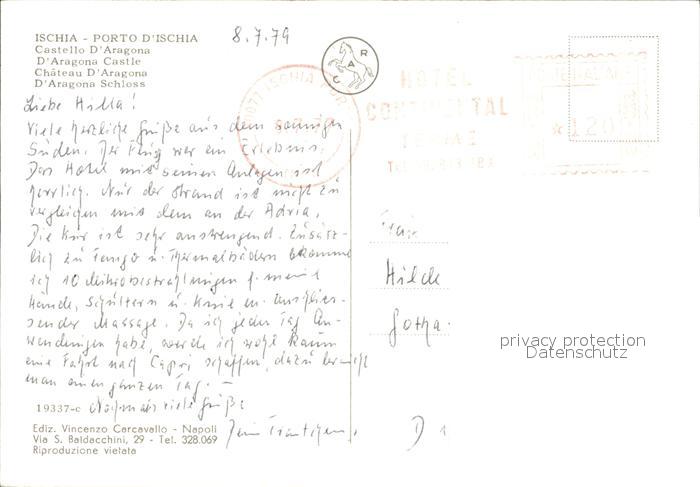 ISCHIA - PORTO D'ISCHIA
Castello D'Aragona
D'Aragona Castle
Château D'Aragona
D'Aragona Schloss
8.7.79
C A R
80077 ISCHIA POR
HOTEL
CONTINENTAL
TERME
POSTE ITALIANE
*120
Liebe Hilla!
Viele herzliche Grüße aus dem sonnigen
Süden. Der Flug war ein Erlebnis.
Das Hotel mit seinen Anlagen ist
herrlich. Nur der Strand ist nicht zu
vergleichen mit dem an der Adria.
Die Kur ist sehr anstrengend. Zusätz-
lich zu Fango u. Thermalbädern bekomme
ich 10 Mikrobestrahlungen f. meine
Hände, Schultern u. Knie m. anschlies-
sender Massage. Da ich jeden Tag An-
wendungen habe, werde ich wohl kaum
eine Fahrt nach Capri schaffen, dazu braucht
man einen ganzen Tag. —
Nochmals viele Grüße
Dein
Hilde
Gotha.
D 1
privacy protection
Datenschutz
19337-c
Ediz. Vincenzo Carcavallo - Napoli
Via S. Baldacchini, 29 - Tel. 328.069
Riproduzione vietata